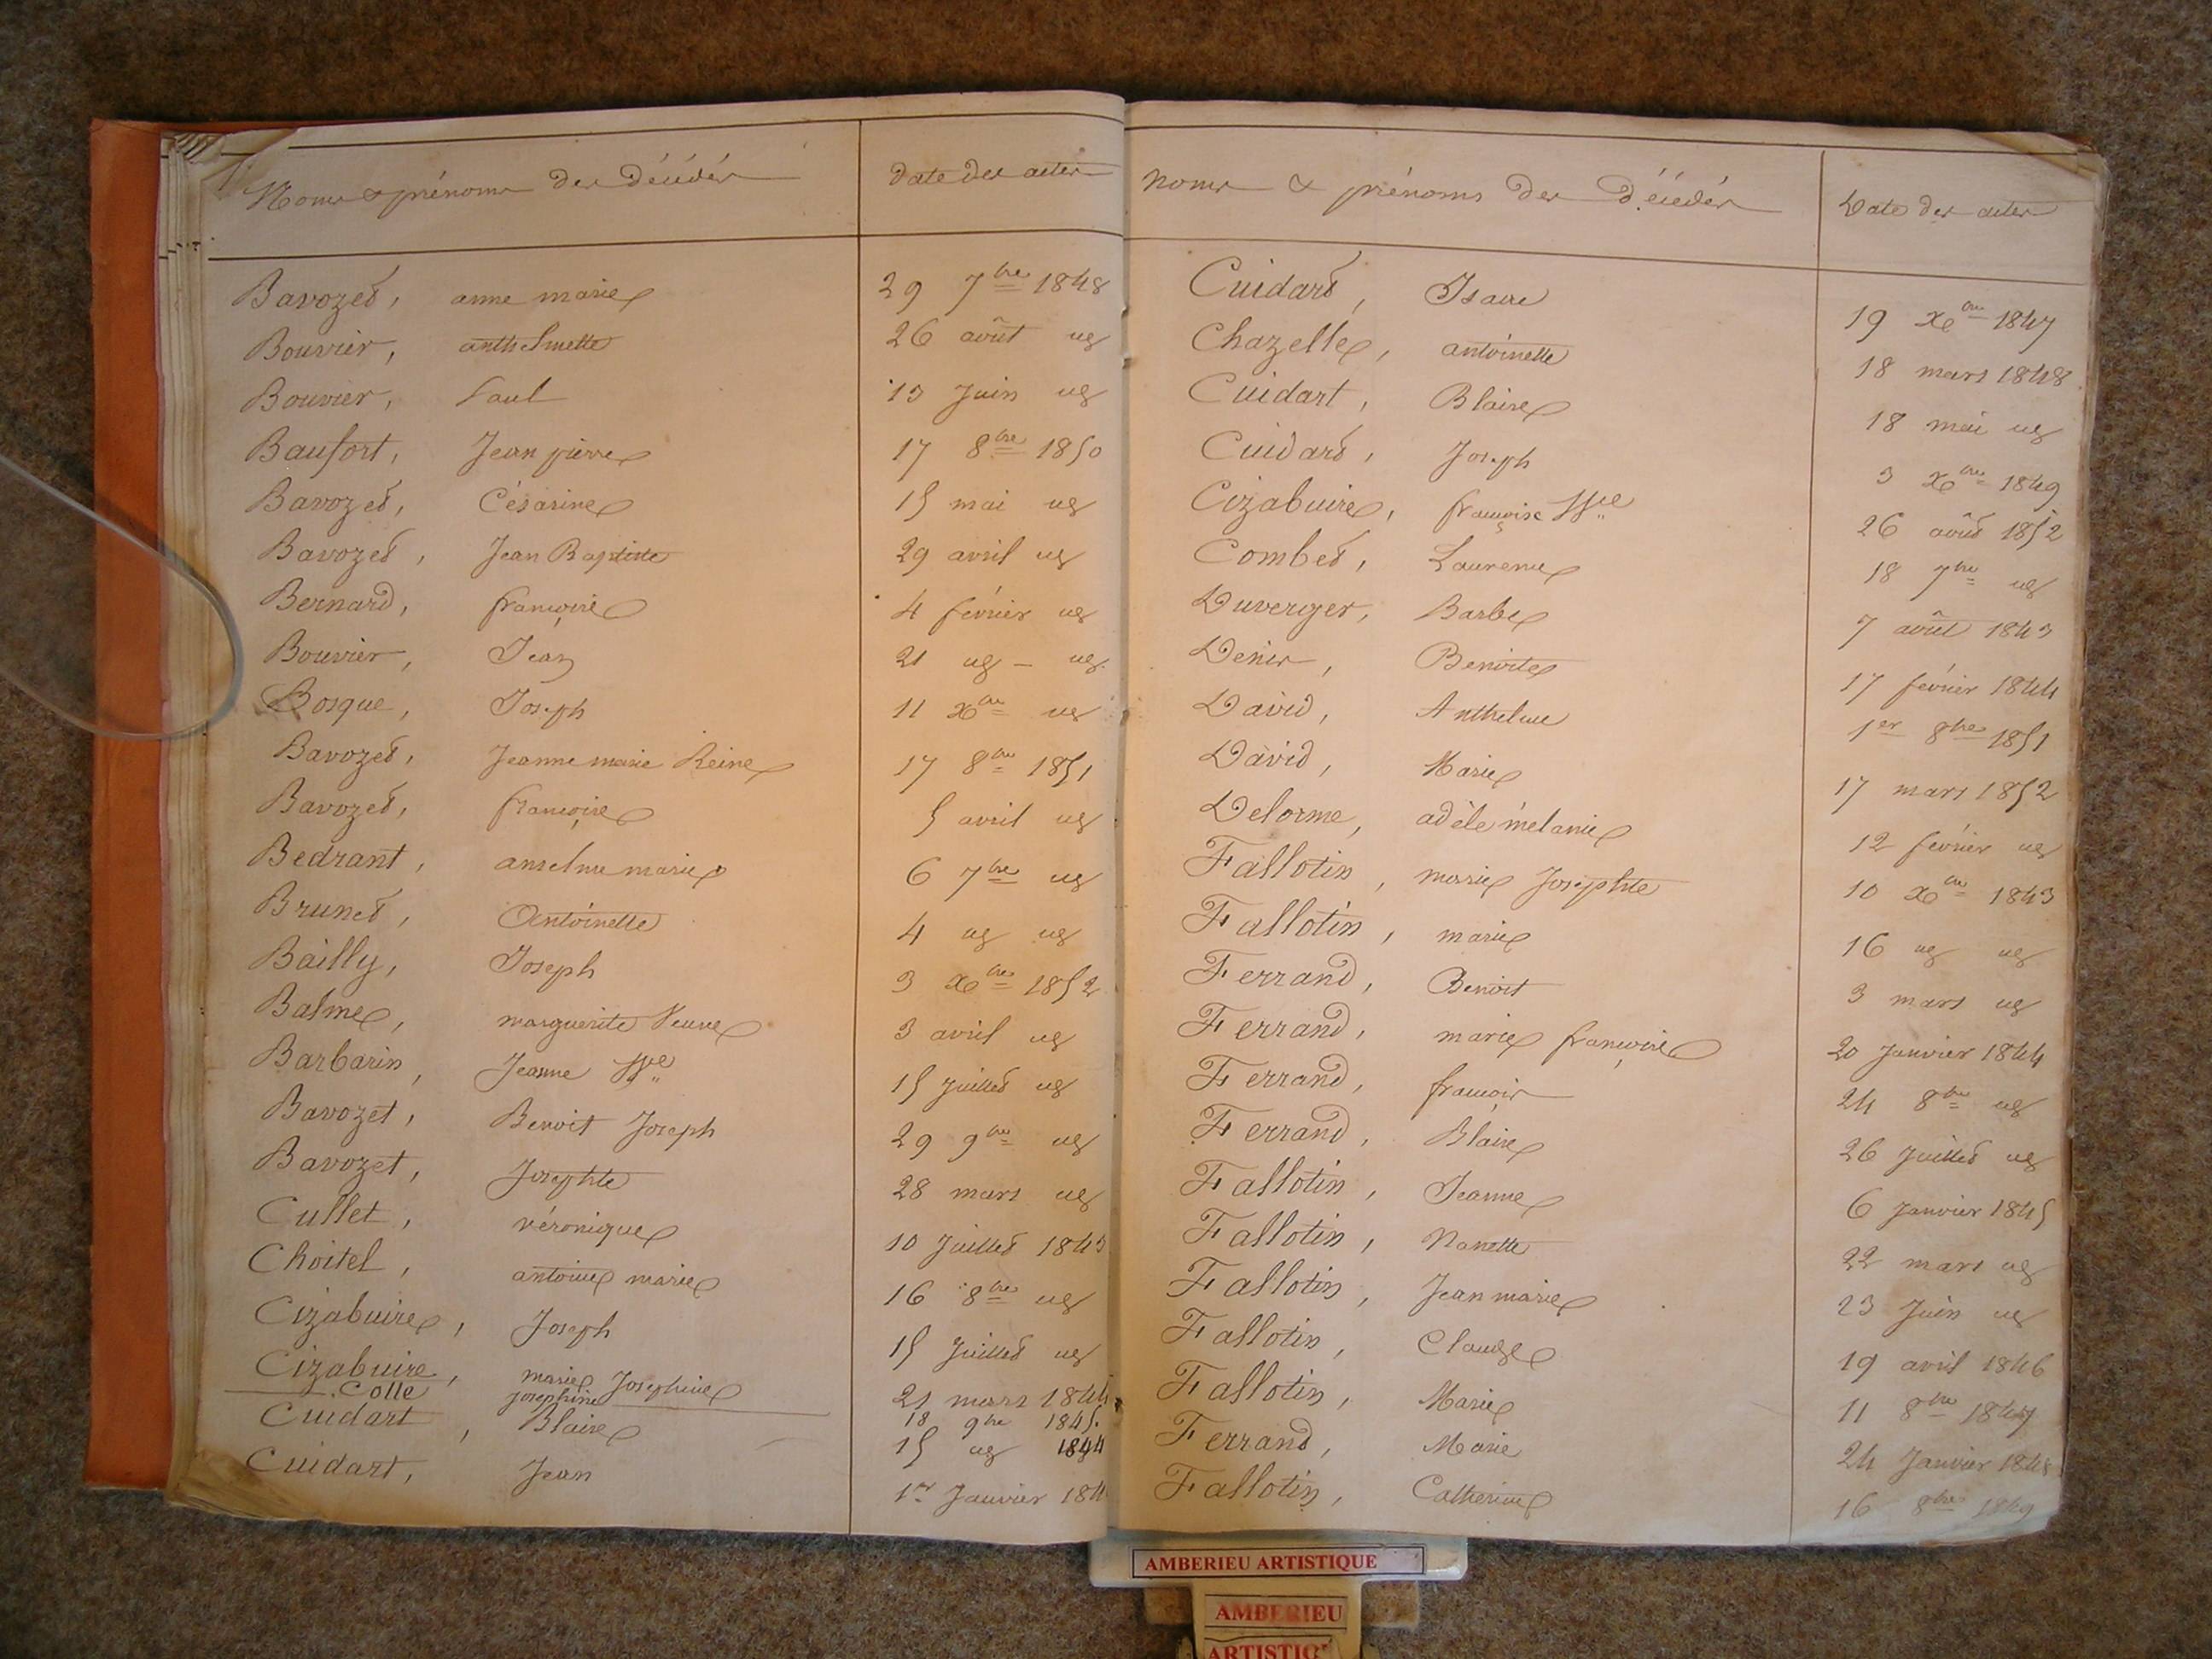 Noms & prénoms des Décédés
Date des actes
Bavozet, anne marie 29 7bre 1848
Bouvier, anthelmette 26 août ug
Bouvier, Paul 13 Juin ug
Baufort, Jean pierre 17 8bre 1850
Bavozet, Césarine 15 mai ug
Bavozet, Jean Baptiste 29 avril ug
Bernard, françoise 4 février ug
Bouvier, Jean 21 ug - ug
Bosque, Joseph 11 Xbre ug
Bavozet, Jeanne marie Reine 17 8bre 1851
Bavozet, françoise 5 avril ug
Bedrant, anselme marie 6 7bre ug
Brunet, Antoinette 4 ug ug
Bailly, Joseph 3 Xbre 1852
Balme, marguerite Veuve 3 avril ug
Barbarin, Jeanne 15 Juillet ug
Bavozet, Benoit Joseph 29 9bre ug
Bavozet, Josephte 28 mars ug
Cullet, véronique 10 Juillet 1843
Choitel, antoine marie 16 8bre ug
Cizabuire, Joseph 15 Juillet ug
Cizabuire, marie Josephine 21 mars 1844
Colle josephine 18 9bre 1845.
Cuidart, Blaise 15 ug 1844
Cuidart, Jean 1er Janvier
Noms & prénoms des Décédés
Date des actes
Cuidard, Isaure 19 Xbre 1847
Chazelle, antoinette 18 mars 1848
Cuidart, Blaise 18 mai ug
Cuidard, Joseph 3 Xbre 1849
Cizabuire, françoise 26 août 1852
Combet, Laurence 18 7bre ug
Duverger, Barbe 7 août 1843
Denis, Benoite 17 février 1844
David, Anthelme 1er 8bre 1851
David, Marie 17 mars 1852
Delorme, adèle mélanie 12 février ug
Fallotin, marie Josephte 10 Xbre 1843
Fallotin, marie 16 ug ug
Ferrand, Benoit 3 mars ug
Ferrand, marie françoise 20 Janvier 1844
Ferrand, françois 24 8bre ug
Ferrand, Blaise 26 Juillet ug
Fallotin, Jeanne 6 Janvier 1845
Fallotin, Nanette 22 mars ug
Fallotin, Jean marie 23 Juin ug
Fallotin, Claude 19 avril 1846
Fallotin, Marie 11 8bre 1847
Ferrand, Marie 24 Janvier 1848
Fallotin, Catherine 16 8bre 1849
AMBERIEU ARTISTIQUE
AMBERIEU